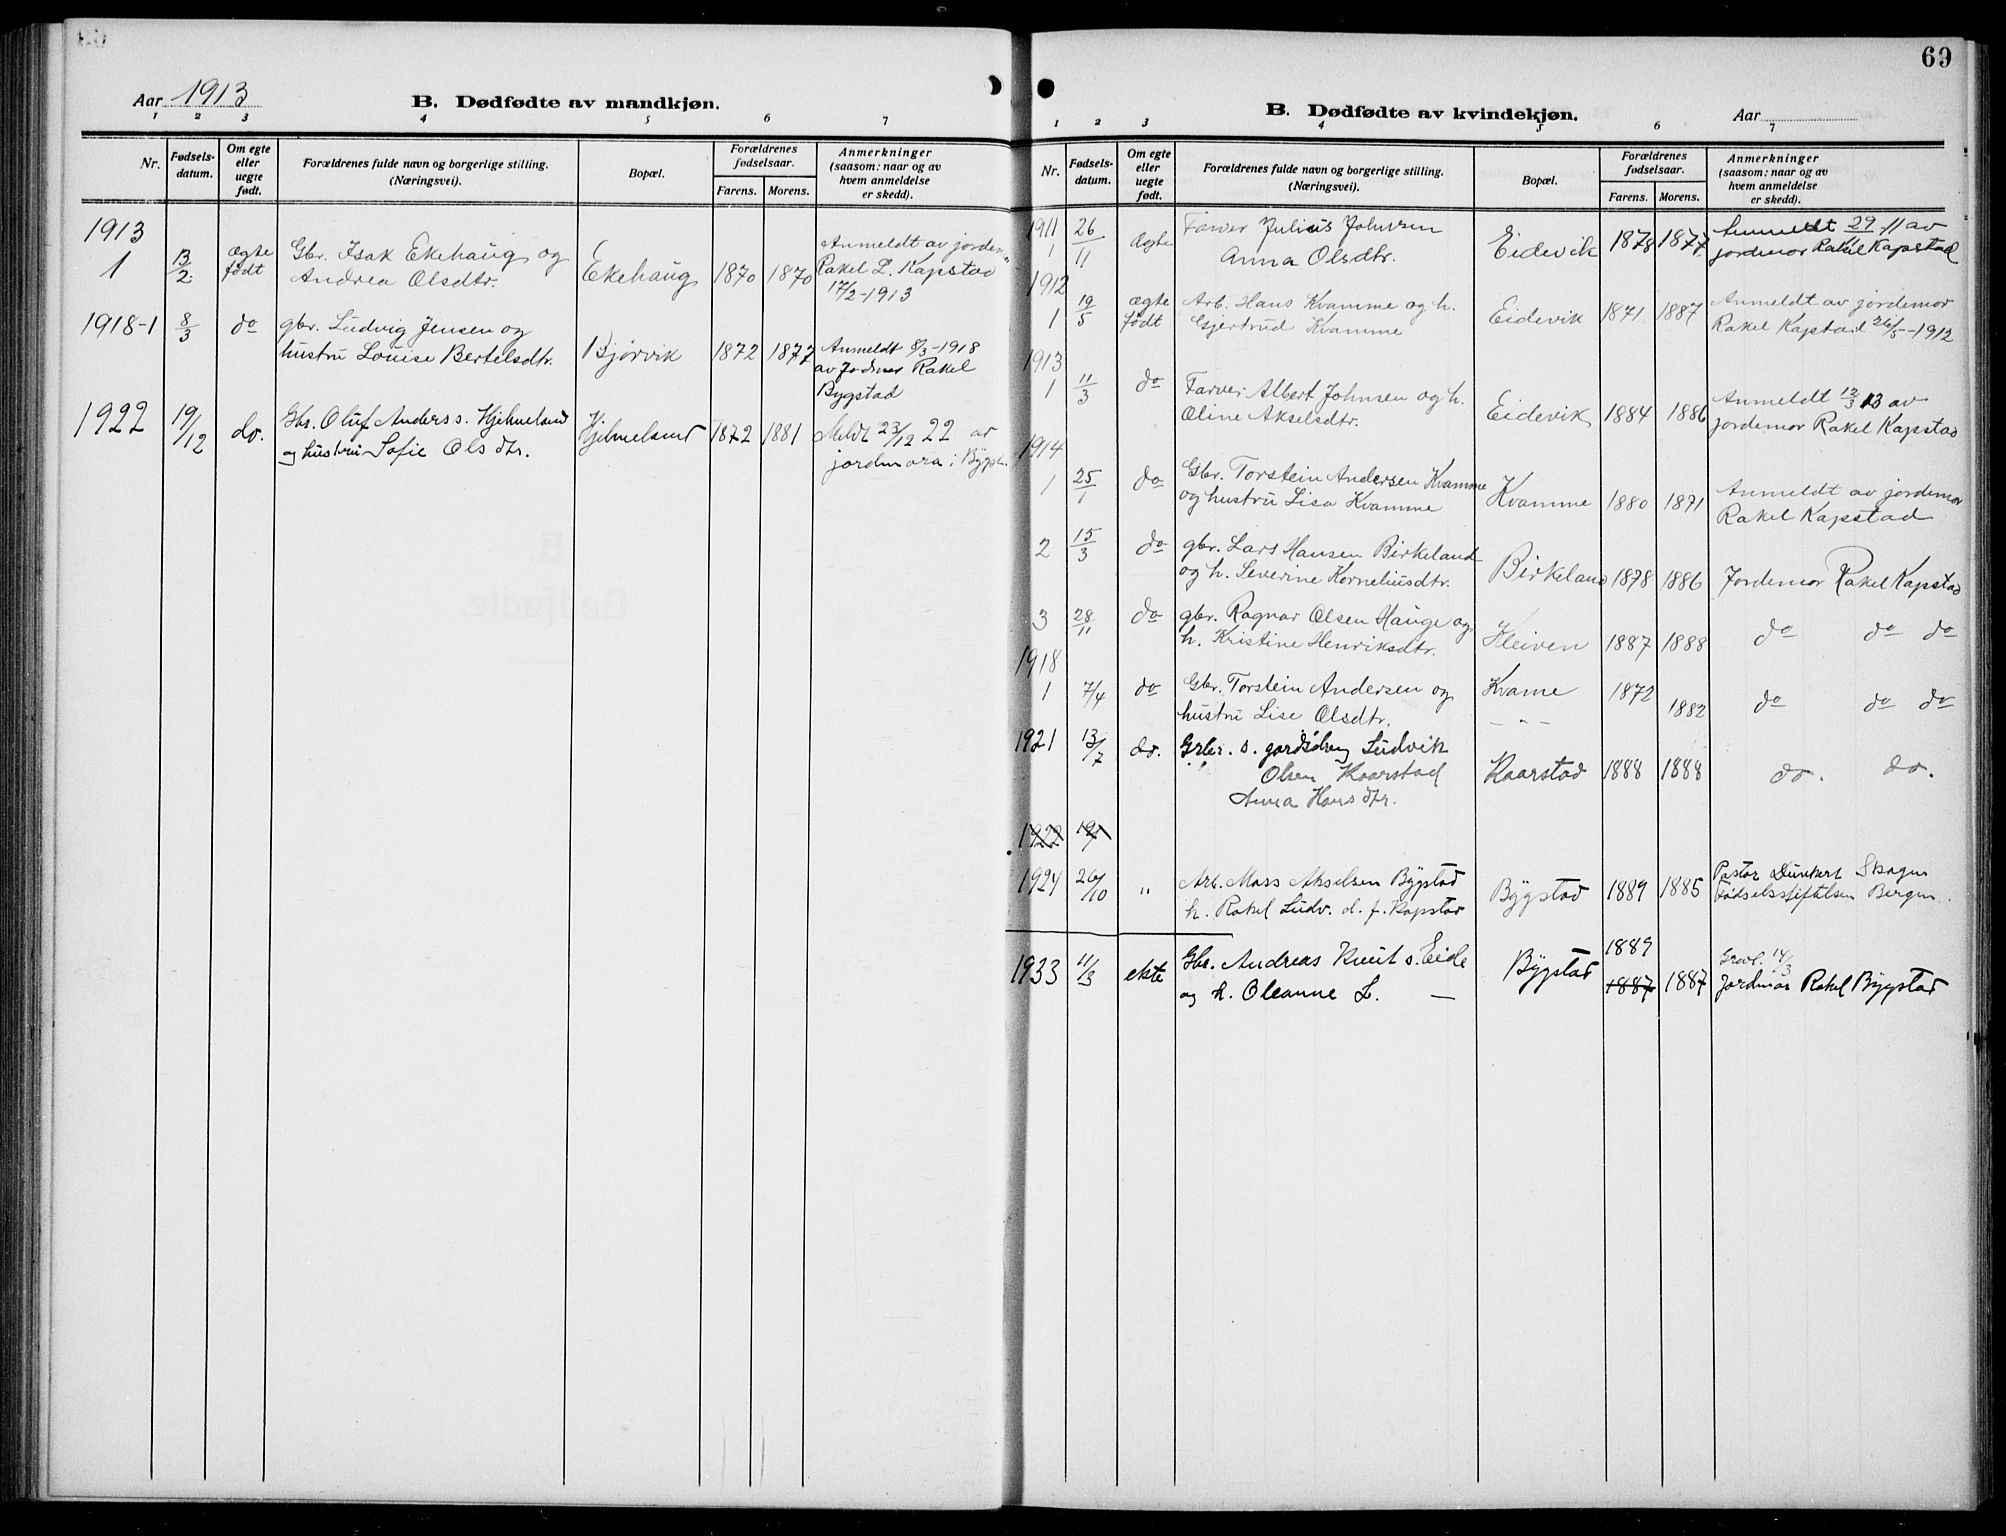 Aar 1913
B. Dødfødte av mandkjøn.
1 2 3 4 5 6 7
Nr.
Fødsels-
datum.
Om egte
eller
uegte
født.
Forældrenes fulde navn og borgerlige stilling.
(Næringsvei).
Bopæl.
Forældrenes
fødselsaar.
Farens. Morens.
Anmerkninger
(saasom: naar og av
hvem anmeldelse
er skedd).
1913
1 13/2 ægte født Gbr. Isak Ekehaug og Ekehaug 1870 1870 Anmeldt av jordem.
Andrea Olsdtr. Rakel L. Kapstad
17/2-1913
1918-1 8/3 do gbr. Ludvig Jensen og Bjørvik 1872 1877 Anmeldt 8/3-1918
hustru Louise Bertelsdtr. av Jodmor Rakel
Bygstad
1922 19/12 do. Gbr. Oluf Anders s. Hjelmeland Hjelmeland 1872 1881 Meldt 23/12 22 av
og hustru Sofie Ols dtr. jordmora i Bygst.
69
B. Dødfødte av kvindekjøn.
Aar
1 2 3 4 5 6 7
Nr.
Fødsels-
datum.
Om egte
eller
uegte
født.
Forældrenes fulde navn og borgerlige stilling.
(Næringsvei).
Bopæl.
Forældrenes
fødselsaar.
Farens. Morens.
Anmerkninger
(saasom: naar og av
hvem anmeldelse
er skedd).
1911
1 26/11 ægte Farver Julius Johnsen Eidevik 1878 1877 Anmeldt 29-11 av
Anna Olsdtr. jordemor Rakel Kapstad
1912
1 19/5 ægte født Arb. Hans Kvamme og h. Eidevik 1871 1887 Anmeldt av jordemor
Gjertrud Kvamme Rakel Kapstad 26/5-1912
1913
1 11/3 do Farver Albert Johnsen og h. Eidevik 1884 1886 Anmeldt 12/3 13 av
Oline Akselsdtr. jordemor Rakel Kapstad
1914
1 25/1 do Gbr. Torstein Andersen Kvamme Kvamme 1880 1871 Anmeldt av jordemor
og hustru Lisa Kvamme Rakel Kapstad
2 15/3 do gbr. Lars Hansen Birkeland Birkeland 1878 1886 Jordemor Rakel Kapstad
og h. Severine Korneliusdtr.
3 28/11 do gbr. Ragnar Olsen Hauge og Kleiven 1887 1888 do do do
h. Kristine Henriksdtr.
1918
1 7/4 do Gbr. Torstein Andersen og Kvame 1872 1882 do do do
hustru Lise Olsdtr. - " -
1921 13/7 do. Grbr. s. Ludvik Kaarstad 1888 1888 do. do.
Olsen Kaarstad
Anna Hans dtr.
1922
1924 26/10 " Arb. Moss Akselsen Bygstad Bygstad 1889 1885 Pastor Dunkert Skogen
h. Rakel Ludv. d. f. Kapstad Fødselsstiftelsen Bergen.
1933 11/3 ekte Gbr. Andreas Knut s. Eide Bygstad 1889 1887 1887 Gravl. 14/3
og h. Oleanne L. — Jordmor Rakel Bygstad